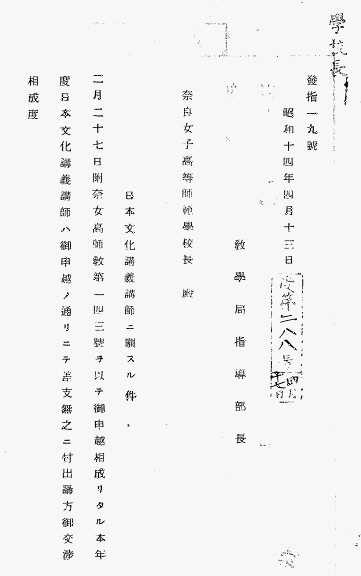 學校長
發指一九號
昭和十四年四月十三日
受第二八八号
四月
十七日
教學局指導部長
奈良女子高等師範學校長 殿
日本文化講義講師ニ關スル件
二月二十七日附奈女高師教第一四三號ヲ以テ御申越相成リタル本年
度日本文化講義講師ハ御申越ノ通リニテ差支無之ニ付出講方御交渉
相成度